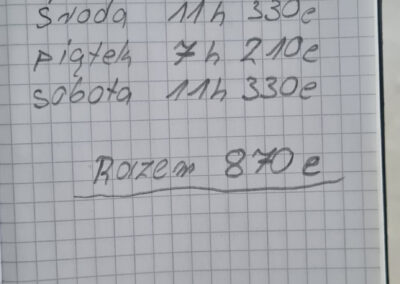 środa 11h 330e
piątek 7h 210e
sobota 11h 330e
Razem 870e